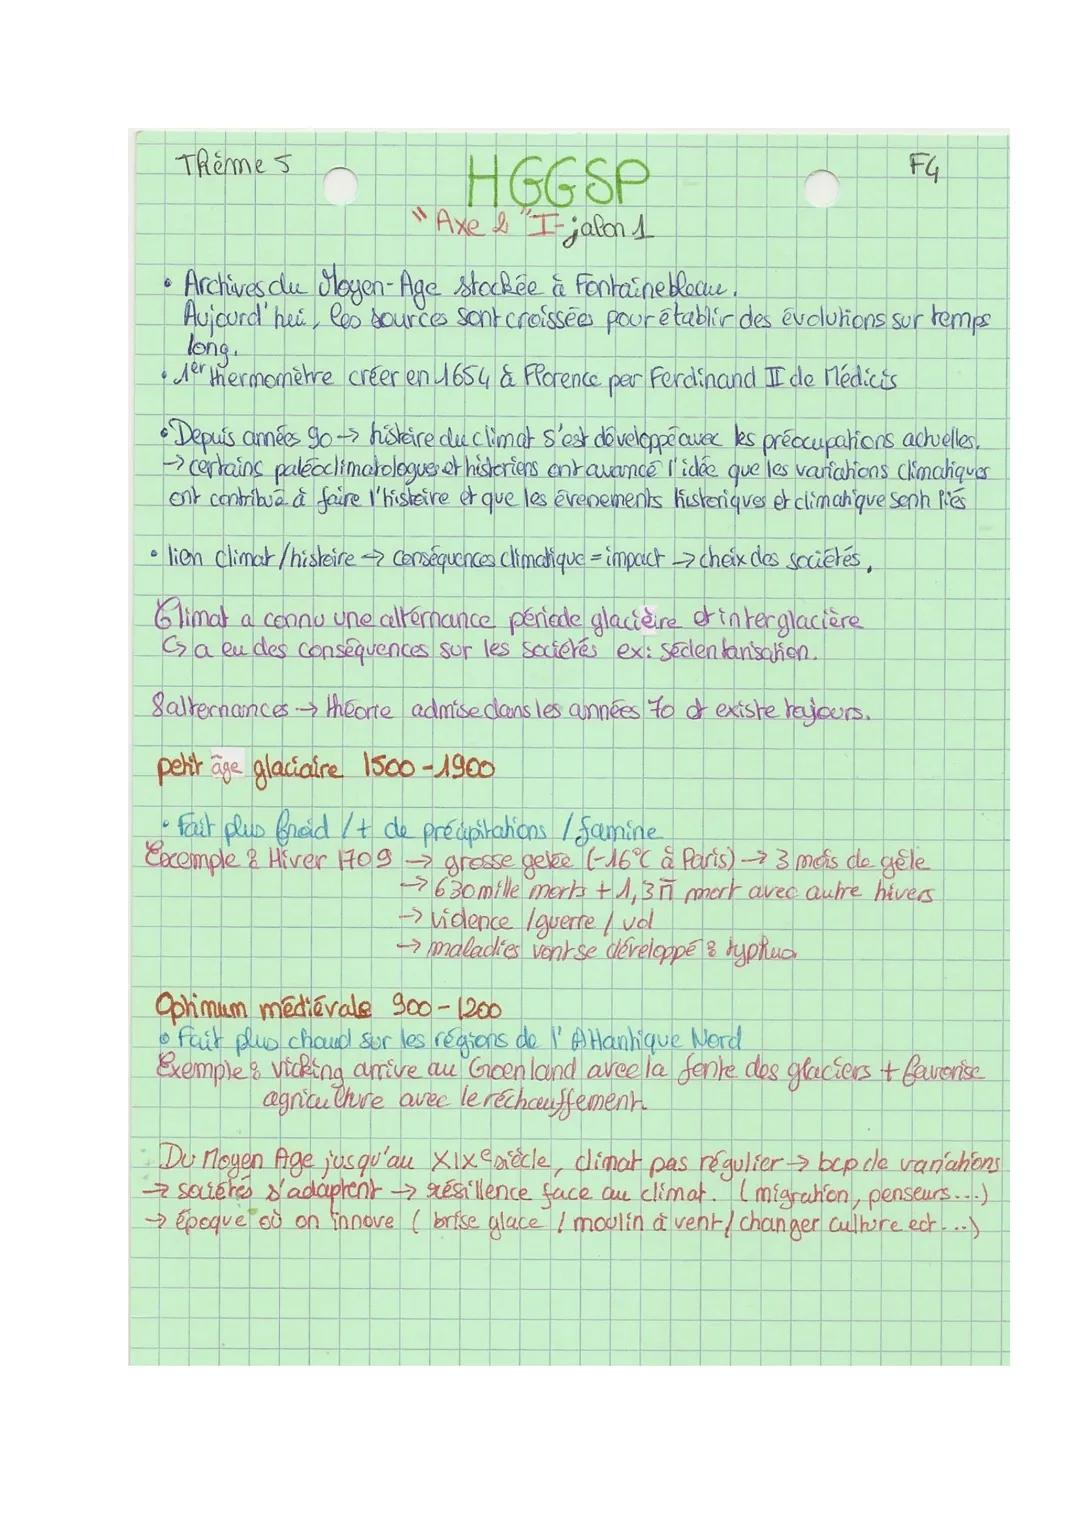 Thème 5
HGGSP
F4
"Axe 2" I-jalon 1
• Archives du Moyen-Age stockée à Fontainebleau.
Aujourd'hui, les sources sont croissées pour établir des évolutions sur temps
long.
• 1er thermomètre créer en 1654 à Florence par Ferdinand II de Médicis
• Depuis années 90 → histoire du climat s'est développé avec les préocupations actuelles.
→ certains paléoclimatologues et historiens ont avancé l'idée que les variations climatiques
ont contribué à faire l'histoire et que les évenements historiques et climatique sont liés
• lien climat/histoire → conséquences climatique = impact → choix des sociétés.
Climat a connu une alternance période glacière et interglacière
↳ a eu des conséquences sur les sociétés ex: sédentarisation.
8 alternances → théorie admise dans les années 70 et existe toujours.
petit âge glaciaire 1500-1900
• Fait plus froid / + de précipitations / famine
Exemple : Hiver 1709 → grosse gelée (-16°C à Paris) → 3 mois de gèle
→ 630 mille morts + 1,3 M mort avec autre hivers
→ violence / guerre / vol
→ maladies vont se développé : typhus
Optimum médiévale 900-1200
• Fait plus chaud sur les régions de l'Atlantique Nord
Exemple : vicking arrive au Groenland avec la fonte des glaciers + favorise
agriculture avec le réchauffement.
Du Moyen Age jusqu'au XIXe siècle, climat pas régulier → bcp de variations
→ sociétés s'adaptent → résillence face au climat. (migration, penseurs...)
→ époque où on innove ( brise glace / moulin à vent / changer culture ect...)